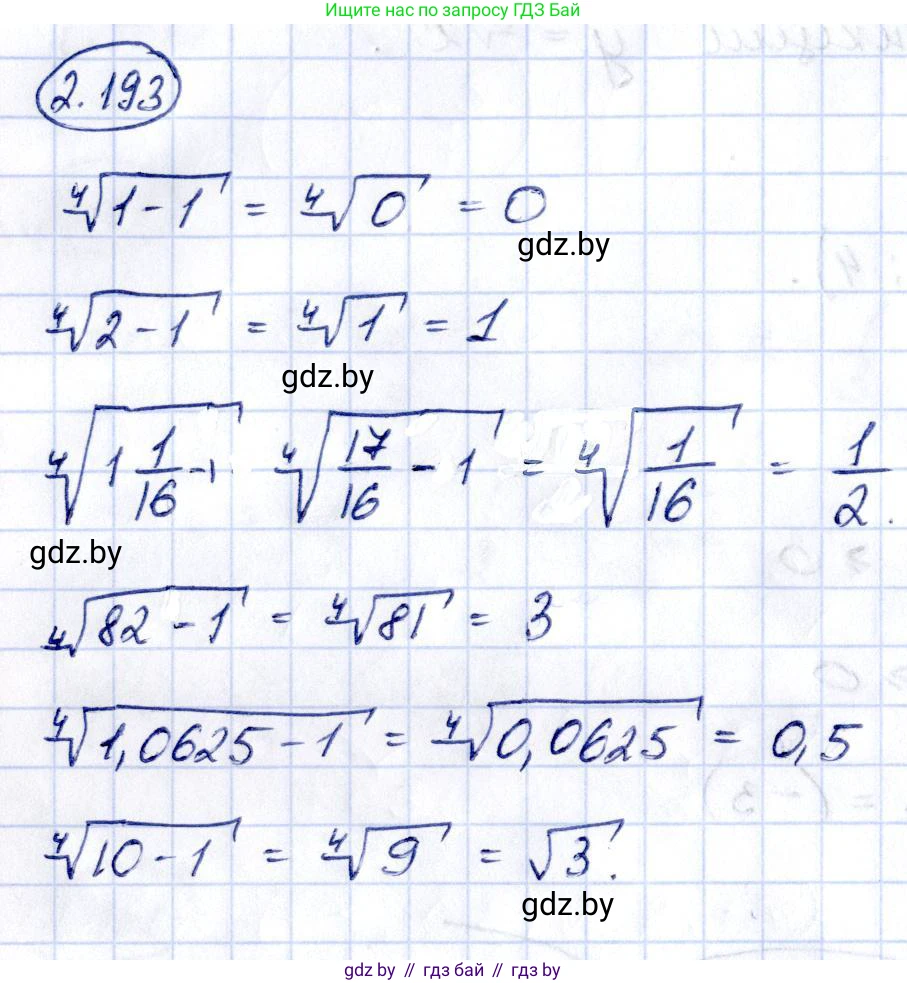 Ищите нас по запросу ГДЗ Бай
2.193
∜(1-1) = ∜0 = 0
gdz.by
∜(2-1) = ∜1 = 1
gdz.by
∜(1 1/16 - 1) ∜(17/16 - 1) = ∜(1/16) = 1/2.
gdz.by
∜(82-1) = ∜81 = 3
∜(1,0625-1) = ∜(0,0625) = 0,5
∜(10-1) = ∜9 = √3.
gdz.by
gdz by // гдз бай // гдз by